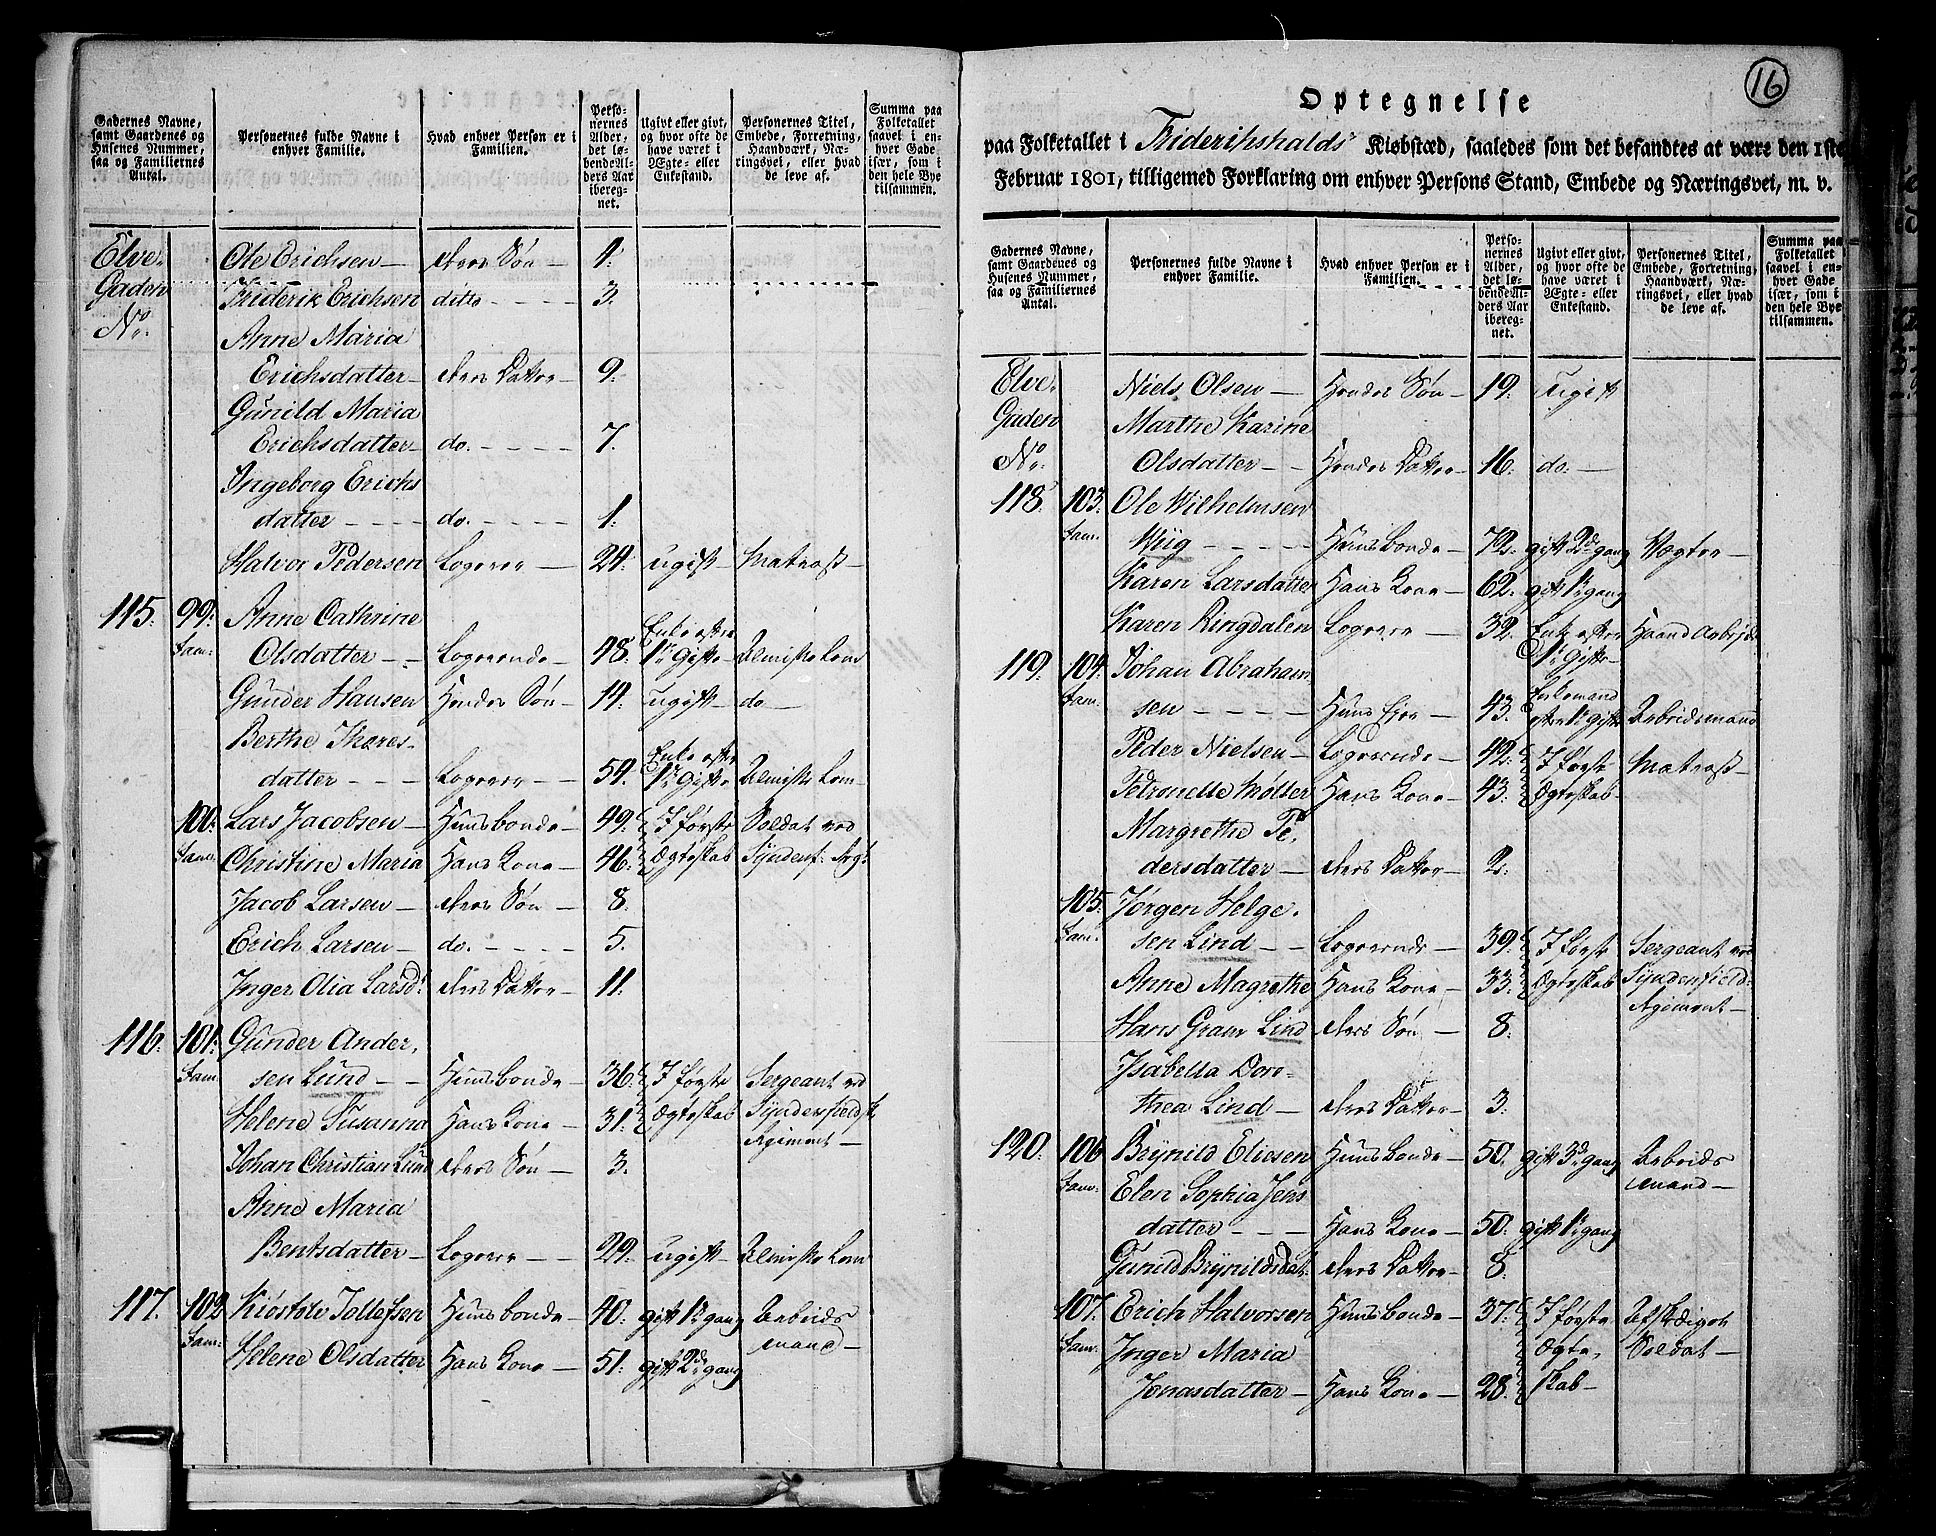 Gadernes Navne, samt Gaardenes og Husenes Nummer, saa og Familiernes Antal.
Personernes fulde Navne i enhver Familie.
Hvad enhver Person er i Familien.
Personernes Alder, det løbende Alders Aar iberegnet.
Ugivt eller givt, og hvor ofte de have været i Ægte- eller Enkestand.
Personernes Titel, Embede, Forretning, Haandværk, Næringsvei, eller hvad de leve af.
Summa paa Folketallet saavel i enhver Gade især, som i den hele Bye tilsammen.
Elve- Ole Erichsen — deres Søn — 1.
Gaden Friderik Erichsen ditto — — — 3.
No. Anne Maria
Erichsdatter — deres Datter — 9.
Gunild Maria
Erichsdatter — do. — — — 7.
Ingeborg Erichs
datter — — — do. — — — 1.
Halvor Pedersen Logerer — 24. ugift Matros —
115. 99. Anne Cathrine
Fam: Olsdatter — Logerende — 48. Enke efter 1e Gifte — Almisse Lem
Gunder Hansen Hendes Søn — 14. ugift — do —
Berthe Thores-
datter — — Logerer — 54. Enke efter 1e Gifte Almisse Lem —
100. Lars Jacobsen — Huusbonde — 49. I første Soldat ved
Fam: Christine Maria Hans Kone — 46. Ægteskab Syndenf: Rgt
Jacob Larsen — deres Søn — 8.
Erich Larsen — do. — — — 5.
Inger Olia Larsdr. deres Datter — 11.
116. 101. Gunder Ander-
Fam: sen Lund — Huusbonde — 36. I første Sergeant ved
Helene Susanna Hans Kone — 31. Ægteskab Syndenfieldsk
Regiment —
Johan Christian Lund deres Søn — 3.
Anne Maria
Bentsdatter — Logerer — 29. ugift Almisse Lem
117. 102 Kiøstolv Tollefsen Huusbonde — 40. gift 1e gang Arbeids
Fam: mand —
Helene Olsdatter Hans Kone — 51. gift 2d gang
16
Optegnelse
paa Folketallet i Friderikshalds Kiøbstæd, saaledes som det befandtes at være den 1ste
Februar 1801, tilligemed Forklaring om enhver Persons Stand, Embede og Næringsvei, m. v.
Gadernes Navne, samt Gaardenes og Husenes Nummer, saa og Familiernes Antal.
Personernes fulde Navne i enhver Familie.
Hvad enhver Person er i Familien.
Personernes Alder, det løbende Alders Aar iberegnet.
Ugivt eller givt, og hvor ofte de have været i Ægte- eller Enkestand.
Personernes Titel, Embede, Forretning, Haandværk, Næringsvei, eller hvad de leve af.
Summa paa Folketallet saavel i enhver Gade især, som i den hele Bye tilsammen.
Elve- Niels Olsen — Hendes Søn — 19. Ugift
Gaden Marthe Karine
No. Olsdatter — Hendes Datter — 16. do. —
118. 103. Ole Wilhelmsen
Fam. Wiig — — — Huusbonde — 72. gift 2d gang Vægter —
Karen Larsdatter Hans Kone — 62. gift 1e gang
Karen Ringdalen Logerer — 32. Enke efter 1e Gifte — Haand Arbeide
119. 104. Johan Abraham-
Fam. sen — — — Huus Ejer — 43. Enkemand efter 1e Gifte Arbeidsmand
Peder Nielsen — Logerende — 42. I første Matros —
Petronelle Møller Hans Kone — 43. Ægteskab —
Margrethe Pe-
dersdatter — deres Datter — 2.
105. Jørgen Helge-
Fam. sen Lind — Logerende — 39. I første Sergeant ved
Anne Magrethe Hans Kone — 33. Ægteskab Syndenfield:
Regiment —
Hans Gram Lind deres Søn — 8.
Isabella Doro-
thea Lind — deres Datter — 3.
120. 106 Brynild Eliesen Huusbonde — 50. gift 3d gang Arbeids
Fam. mand —
Elen Sophia Jens
datter — — Hans Kone — 50. gift 1e gang
Gunild Brynildsdat. deres Datter — 8.
107. Erich Halvorsen Huusbonde — 37. I første Afskediget
Fam. Inger Maria Ægte- Soldat —
Jonasdatter — Hans Kone — 28. skab —